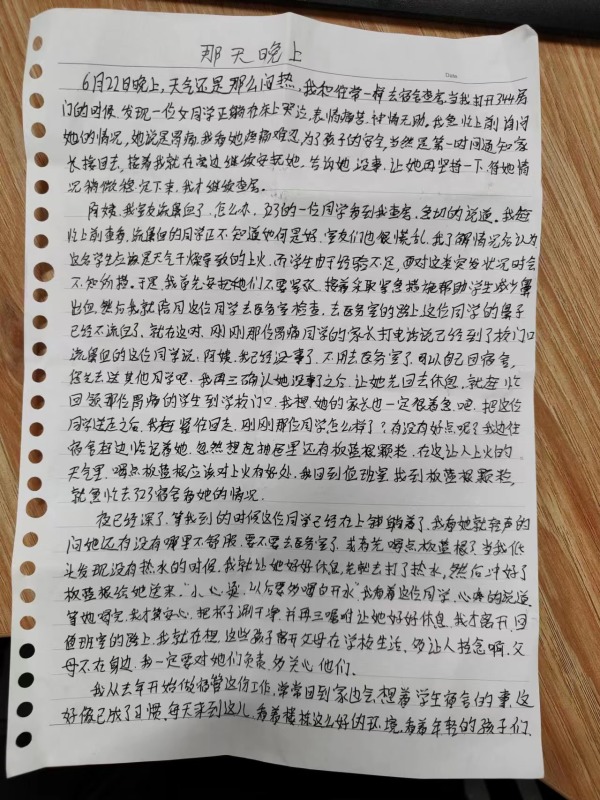 那天晚上
Date
6月22日晚上,天气还是那么闷热,我和往常一样去宿舍查寝,当我打开344房
门的时候,发现一位女同学正躺在床上哭泣,表情痛苦,神情无助。我急忙上前询问
她的情况,她说是胃痛,我看她疼痛难忍,为了孩子的安全,当然是第一时间通知家
长接回去,接着我就在旁边继续安抚她,告诉她没事,让她再坚持一下,待她情
况稍微稳定下来,我才继续查寝。
阿姨,我室友流鼻血了,怎么办,323的一位同学看到我查寝,急切的说道。我赶
忙上前查看,流鼻血的同学正不知道如何是好,室友们也很慌乱,我了解情况后认为
这名学生应该是天气干燥导致的上火,而学生由于经验不足,面对这类突发状况时会
不知所措。于是,我首先安抚他们不要紧张,接着采取紧急措施帮助学生减少鼻
出血,然后我就陪同这位同学去医务室检查,去医务室的路上这位同学的鼻子
已经不流血了,就在这时,刚刚那位胃痛同学的家长打电话说已经到了校门口
流鼻血的这位同学说:阿姨,我已经没事了,不用去医务室了,可以自己回宿舍,
您先去送其他同学吧,我再三确认她没事了之后,让她先回去休息,就赶忙
回领那位胃痛的学生到学校门口,我想,她的家长也一定很着急吧,把这位
同学送走之后,我赶紧往回走,刚刚那位同学怎么样了?有没有好点呢?我边往
宿舍赶边惦记着她,忽然想起抽屉里还有板蓝根颗粒,在这让人上火的
天气里,喝点板蓝根应该对上火有好处,我回到值班室,找到板蓝根颗粒,
就急忙去323宿舍看她的情况。
夜已经深了,等我到的时候这位同学已经在上铺躺着了,我看她就轻声的
问她还有没有哪里不舒服,要不要去医务室了,或者先喝点板蓝根了,当我低
头发现没有热水的时候,我就让她好好休息,先跑去打了热水,然后冲好了
板蓝根给她送来,“小心烫,以后要多喝白开水”我看着这位同学,心疼的说道,
等她喝完,我才算安心,把杯子涮干净,并再三嘱咐让她好好休息,我才离开,回
值班室的路上,我就在想,这些孩子离开父母在学校生活,多让人挂念啊,父
母不在身边,我一定要对她们负责,多关心他们。
我从去年开始做宿管这份工作,常常回到家也会想着学生宿舍的事,这
好像已成了习惯,每天来到这儿,看着楼栋这么好的环境,看着年轻的孩子们,